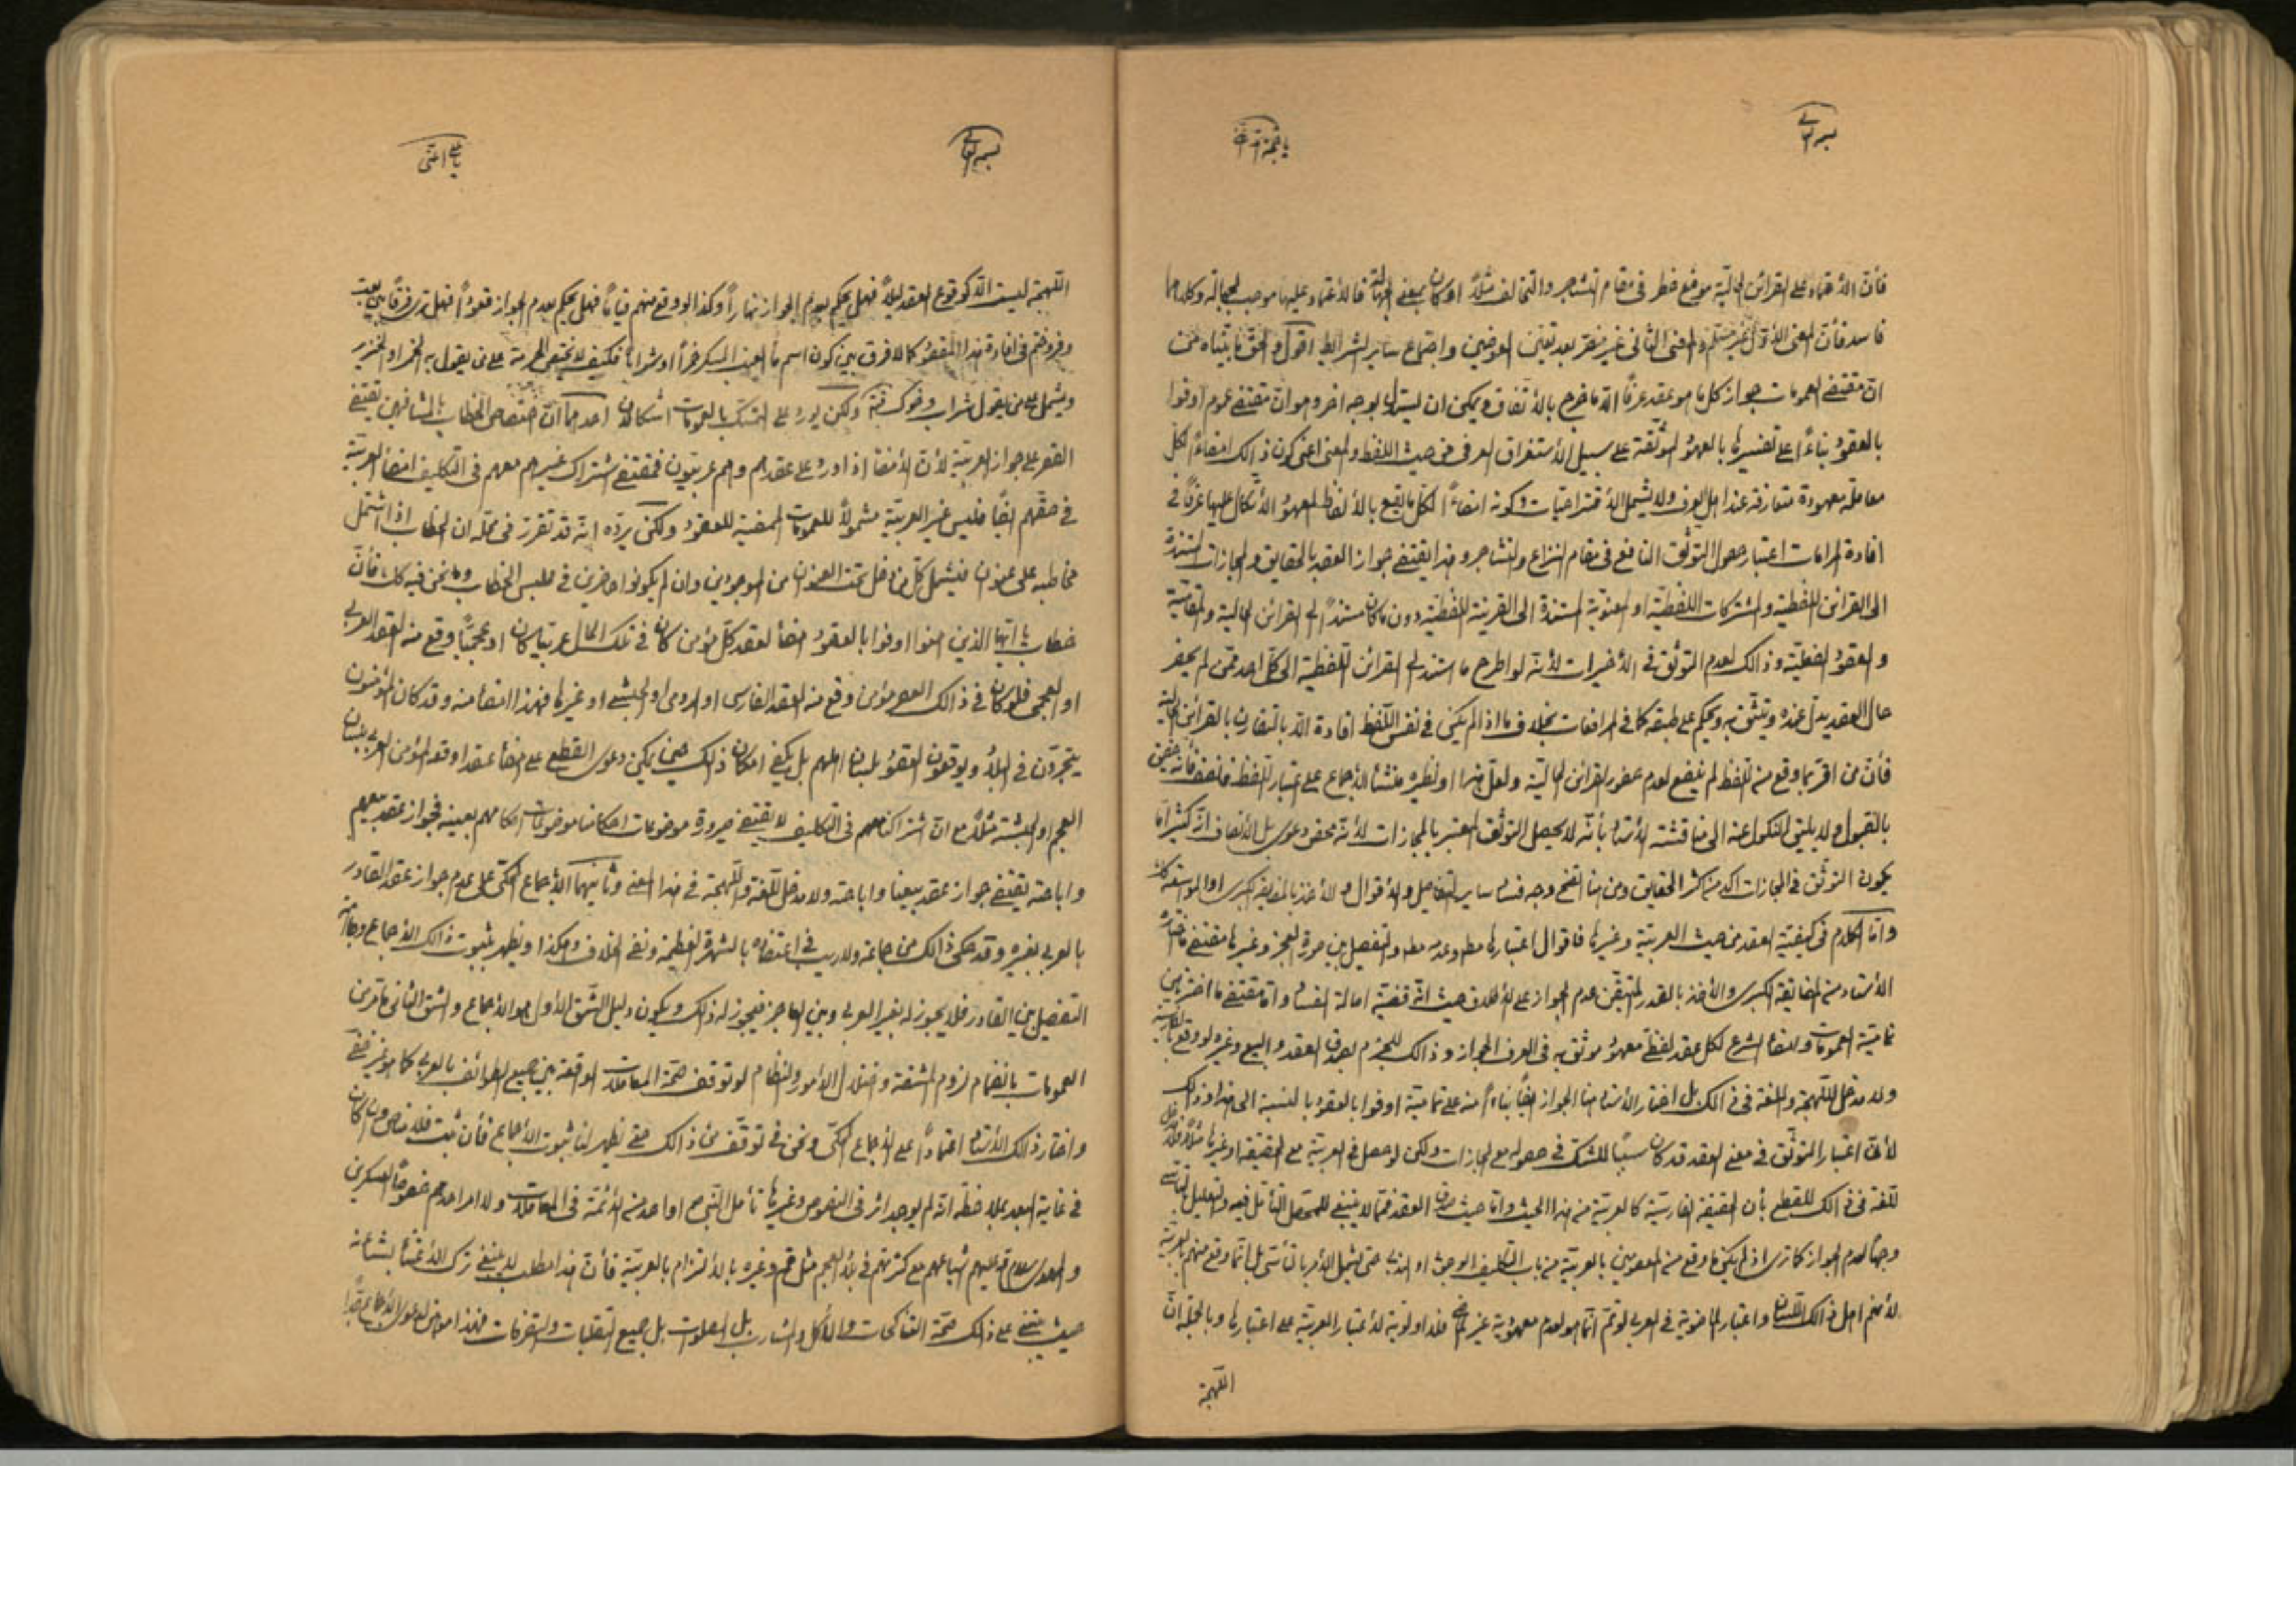 بسمه تعالى
فأن الأعتماد على القرائن الحالية موقع خطر فى مقام التشاجر والتخالف مثلا او كان بمعنى الجهالة فالأعتماد عليها موجب للجهالة وكلاهما
فاسد فأن المعنى الأول غير مسلم والمعنى الثانى غير مضر بعد تعيين العوضين واجتماع ساير الشرايط اقول والحق ما بنيناه من
ان مقتضى العمومات جواز كل ما هو عقد عرفا الا ما خرج بالأتفاق ويمكن ان يستدل بوجه اخر وهو ان مقتضى عموم اوفوا
بالعقود بناءً على تفسيرها بالعهود الموثقة على سبيل الأستغراق العرفى من حيث اللفظ والمعنى اعنى كون ذالك امضاءً لكل
معاملة معهودة متعارفة عند اهل العرف ولا يشمل الأقتراحيات وكونه امضاءً لكل ما يقع بالألفاظ المعهود الأتكال عليها عرفا فى
افادة المرامات اعتبار حصول التوثق النافع فى مقام النزاع والتشاجر وهذا يقتضى جواز العقد بالحقايق والمجازات المستندة
الى القرائن اللفظية والمشتركات اللفظية او المعنوية المستندة الى القرينة اللفظية دون ما كان مستنداً الى القرائن الحالية والمقامية
والعقود الفعلية وذالك لعدم التوثق فى الأخيرات لأنه لو اطرح ما استند الى القرائن اللفظية الى كل احد ممن لم يحضر
حال العقد يدل عنده ويتثق به ويحكم على طبقه كما فى المرافعات بخلاف ما اذا لم يكن فى نفس اللفظ افادة الا بالتقارن بالقرائن الحالية
فأن من اقر بما وقع من اللفظ لم ينفع لعدم حضور القرائن الحالية ولعل هذا او نظيره منشأ الأجماع على اعتبار اللفظ
بالقبول ولا يليق النكول عنه الى مناقشة الأستاد بأنه لا يحصل التوثق المعتبر بالمجازات لأنه محض دعوى بل الأنصاف انه كثيرا ما
يكون التوثق فى المجازات اكد من اكثر الحقايق ومن هنا اتضح وجه فساد ساير التفاصيل والأقوال والأخذ بالمضايقة الكبرى او الموسعة
واما الكلام فى كيفية العقد من حيث العربية وغيرها فأقوال اعتبارها مط وعدمه مط والتفصيل بين صورة العجز وغيرها مقتضى ما اختاره
الأستاد من المضايقة الكبرى والأخذ بالقدر المتيقن عدم الجواز على الأطلاق حيث انه قضية اصالة الفساد واما مقتضى ما اخترنا من
تمامية العمومات وامضاء الشرع لكل عقد لفظى معهود موثق به فى العرف الجواز وذالك للجزم بصدق العقد والبيع وغيره لو وقع بالفارسية
ولا مدخل للهجة واللغة فى ذالك بل اختار الأستاد هنا الجواز ايضاً بناءً منه على تمامية اوفوا بالعقود بالنسبة الى هذا وذالك
لأن اعتبار التوثق فى معنى العقد قد كان سبباً للشك فى حصوله مع المجازات ولكن لو حصل فى العربية مع الحقيقة او غيرها مثلاً فلا مدخل
للغة فى ذالك للقطع بأن الحقيقة الفارسية كالعربية من هذا الحيث واما حيث صدق العقد فمما لا ينبغى للمحصل التأمل فيه والتعليل بالتأسى
وجهاً لعدم الجواز كما ترى اذ لم يكن ما وقع من المعصومين بالعربية من باب التكليف الوجوبى او الندبى حتى يشمل الأمر بالتأسى بل انما وقع منهم بالعربية
لأنهم اهل ذالك اللسان واعتبار الماضوية فى العربى لو تم انما هو لعدم معهودية غير الماضى فلا اولوية لأعتبار العربية على اعتبارها وبالجملة ان
اللهجة
يا على اغثنى
بسمه تعالى
اللهجة ليست الا كوقوع العقد ليلاً فهل يحكم بعدم الجواز نهاراً وكذا لو وقع منهم قياماً فهل يحكم بعدم الجواز قعوداً فهل ترى فرقاً بين بعت
وفروختم فى افادة هذا المقصود كما لا فرق بين كون اسم ما العنب المسكر خمراً او شراباً فكيف لا تختص الحرمة على من يقول به الخمر او الخنزير
ويشمل على من يقول شراب وخوك فتنبه ولكن يورد على التمسك بالعمومات اشكالان احدهما ان اختصاص الخطاب بالمشافهين يقتضى
القصر على جواز العربية لأن الأمضاء اذا ورد على عقدهم وهم عربيون فمقتضى اشتراك غيرهم معهم فى التكليف امضاء العربية
فى حقهم ايضاً فليس غير العربية مشمولاً للعمومات الممضية للعقود ولكن يرده انه قد تقرر فى محله ان الخطاب اذا اشتمل
مخاطبه على عنوان فيشمل كل من دخل تحت العنوان من الموجودين وان لم يكونوا حاضرين فى مجلس الخطاب وما نحن فيه كك فأن
خطاب يا ايها الذين امنوا اوفوا بالعقود امضاء لعقد كل مؤمن كان فى تلك الحال عربيا كان او عجميا وقع منه العقد العربى
او العجمى فلو كان فى ذالك العصر مؤمن وقع منه العقد الفارسى او الرومى او الحبشى او غيرها فهذا امضاء منه وقد كان المؤمنون
يتجرون فى البلاد ويوقعون العقود بلسان اهلهم بل يكفى امكان ذالك حين يمكن دعوى القطع على امضاء عقد اوقعه المؤمن العربى بلسان
العجم او الحبشة مثلاً مع ان اشتراكنا معهم فى التكليف لا يقتضى صيرورة موضوعات احكامنا موضوعات احكامهم بعينه فجواز عقد بيعهم
واباحته يقتضى جواز عقد بيعنا واباحته ولا مدخل للغة واللهجة فى هذا المعنى وثانيهما الأجماع المحكى على عدم جواز عقد القادر
بالعربى بغيره وقد حكى ذالك من جماعة ولا ريب فى اعتضاده بالشهرة العظيمة ونفى الخلاف وهكذا ويظهر بثبوت ذالك الأجماع وجه
التفصيل بين القادر فلا يجوز له بغير العربى وبين العاجز فيجوز له ذلك ويكون دليل الشق الأول هو الأجماع والشق الثانى ما مر من
العمومات بانضمام لزوم المشقة واختلال الأمور والنظام لو توقف صحة المعاملات الواقعة بين جميع الطوائف بالعربى كما هو غير خفى
واختار ذلك الأستاد اعتماداً على الأجماع المحكى ونحن فى توقف من ذالك حتى يظهر لنا ثبوت الأجماع فأن ثبت فلا مناص وان كان
فى غاية البعد بملاحظة انه لم يوجد اثر فى النصوص وغيرها تأمل النبى ص او احد من الأئمة فى المعاملات ولا امر احدهم خصوصاً العسكرين
والهادى سلام الله عليهم اشياعهم مع كثرتهم فى بلاد العجم مثل قم وغيره بالألتزام بالعربية فأن هذا مطلب لا ينبغى ترك الأعتناء بشأنه
حيث يبتنى على ذلك صحة المناكحات والمأكل والمشارب بل الصلوات بل جميع التقلبات والتصرفات فهذا